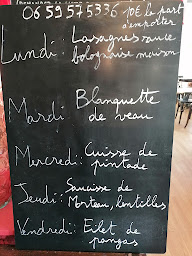 06 59 57 5336 10€ la part
à emporter
Lundi : Lasagnes sauce
bolognaise maison
Mardi : Blanquette
de veau
Mercredi : Cuisse de
pintade
Jeudi : Saucisse de
Morteau, lentilles
Vendredi : Filet de
pangas